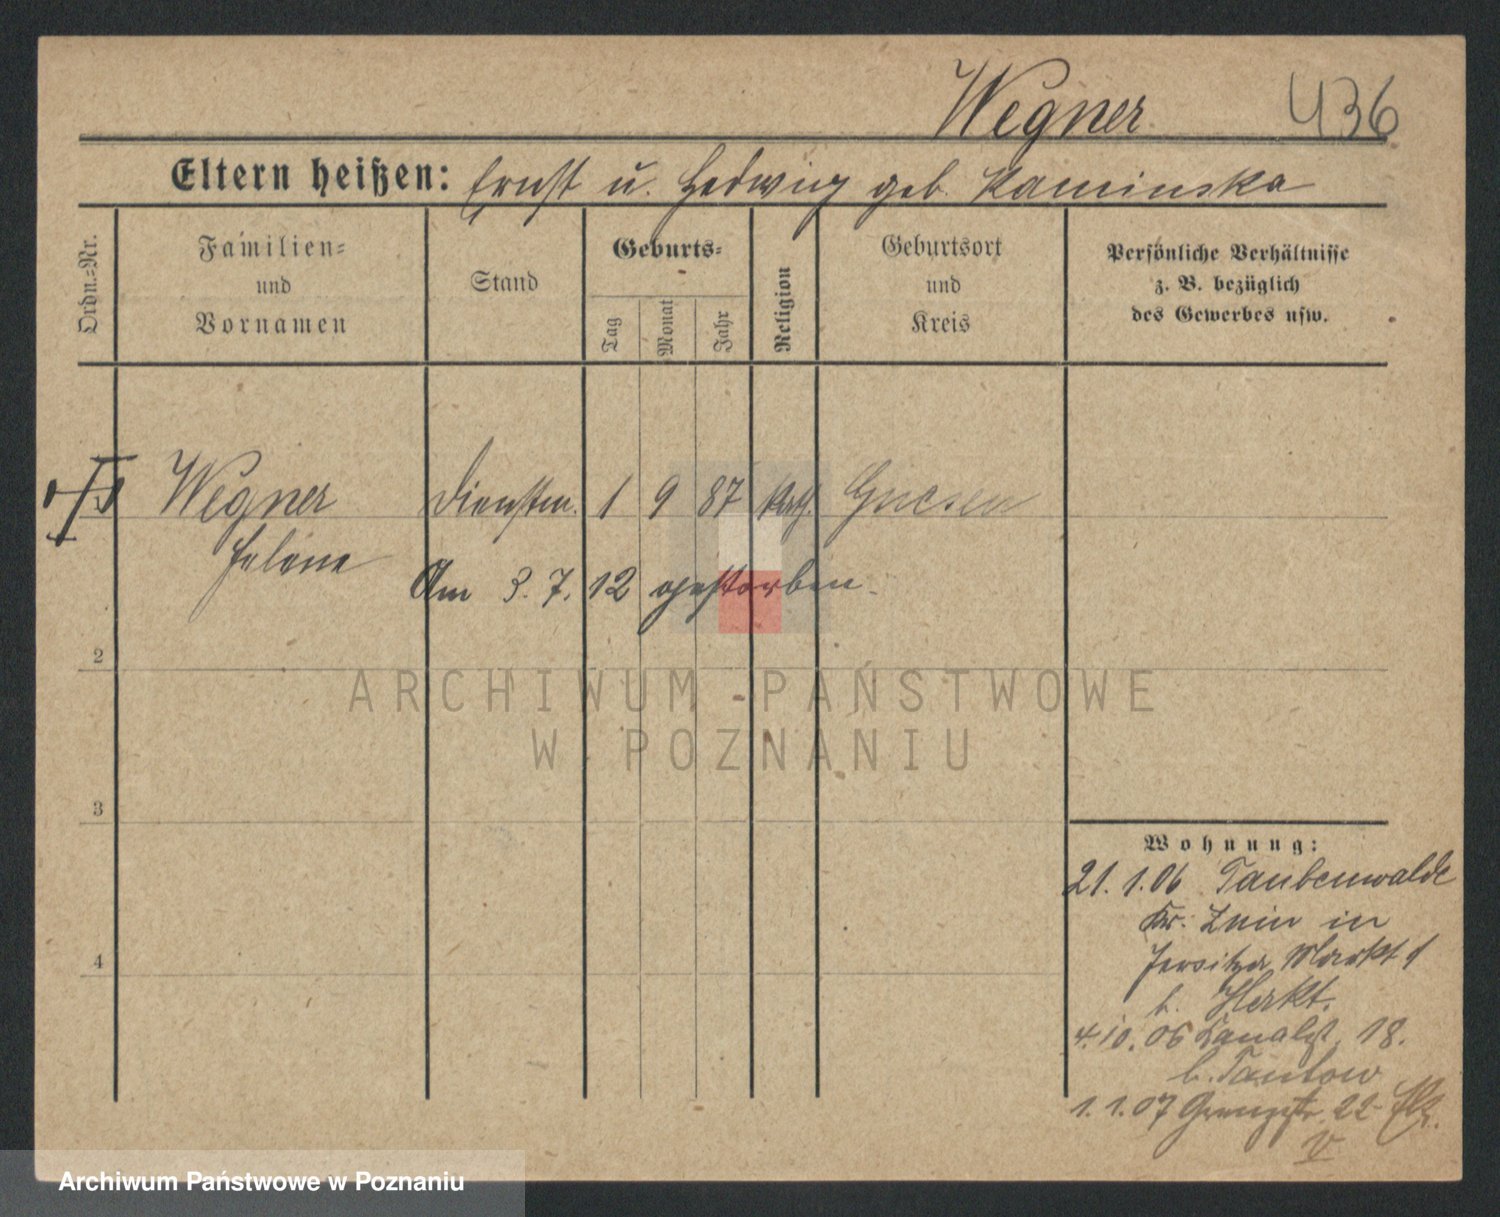 Wegner 436
Eltern heißen: Ernst u. Hedwig geb. Kaminska
Ordn.-Nr.
Familien-
und
Vornamen
Stand
Geburts-
Tag
Monat
Jahr
Religion
Geburtsort
und
Kreis
Persönliche Verhältnisse
z. B. bezüglich
des Gewerbes usw.
Wegner Dienstm. 1 9 87 kath. Gnesen
Helene
Am 3. 7. 12 gestorben.
2
ARCHIWUM PAŃSTWOWE
W POZNANIU
3
4
Wohnung:
21. 1. 06 Taubenwalde
Kr. Znin in
Jersitzer Markt 1
b. Herkt.
4. 10. 06 Kanalst. 18.
b. Tautow
1. 1. 07 Grenzstr. 22
V
Archiwum Państwowe w Poznaniu